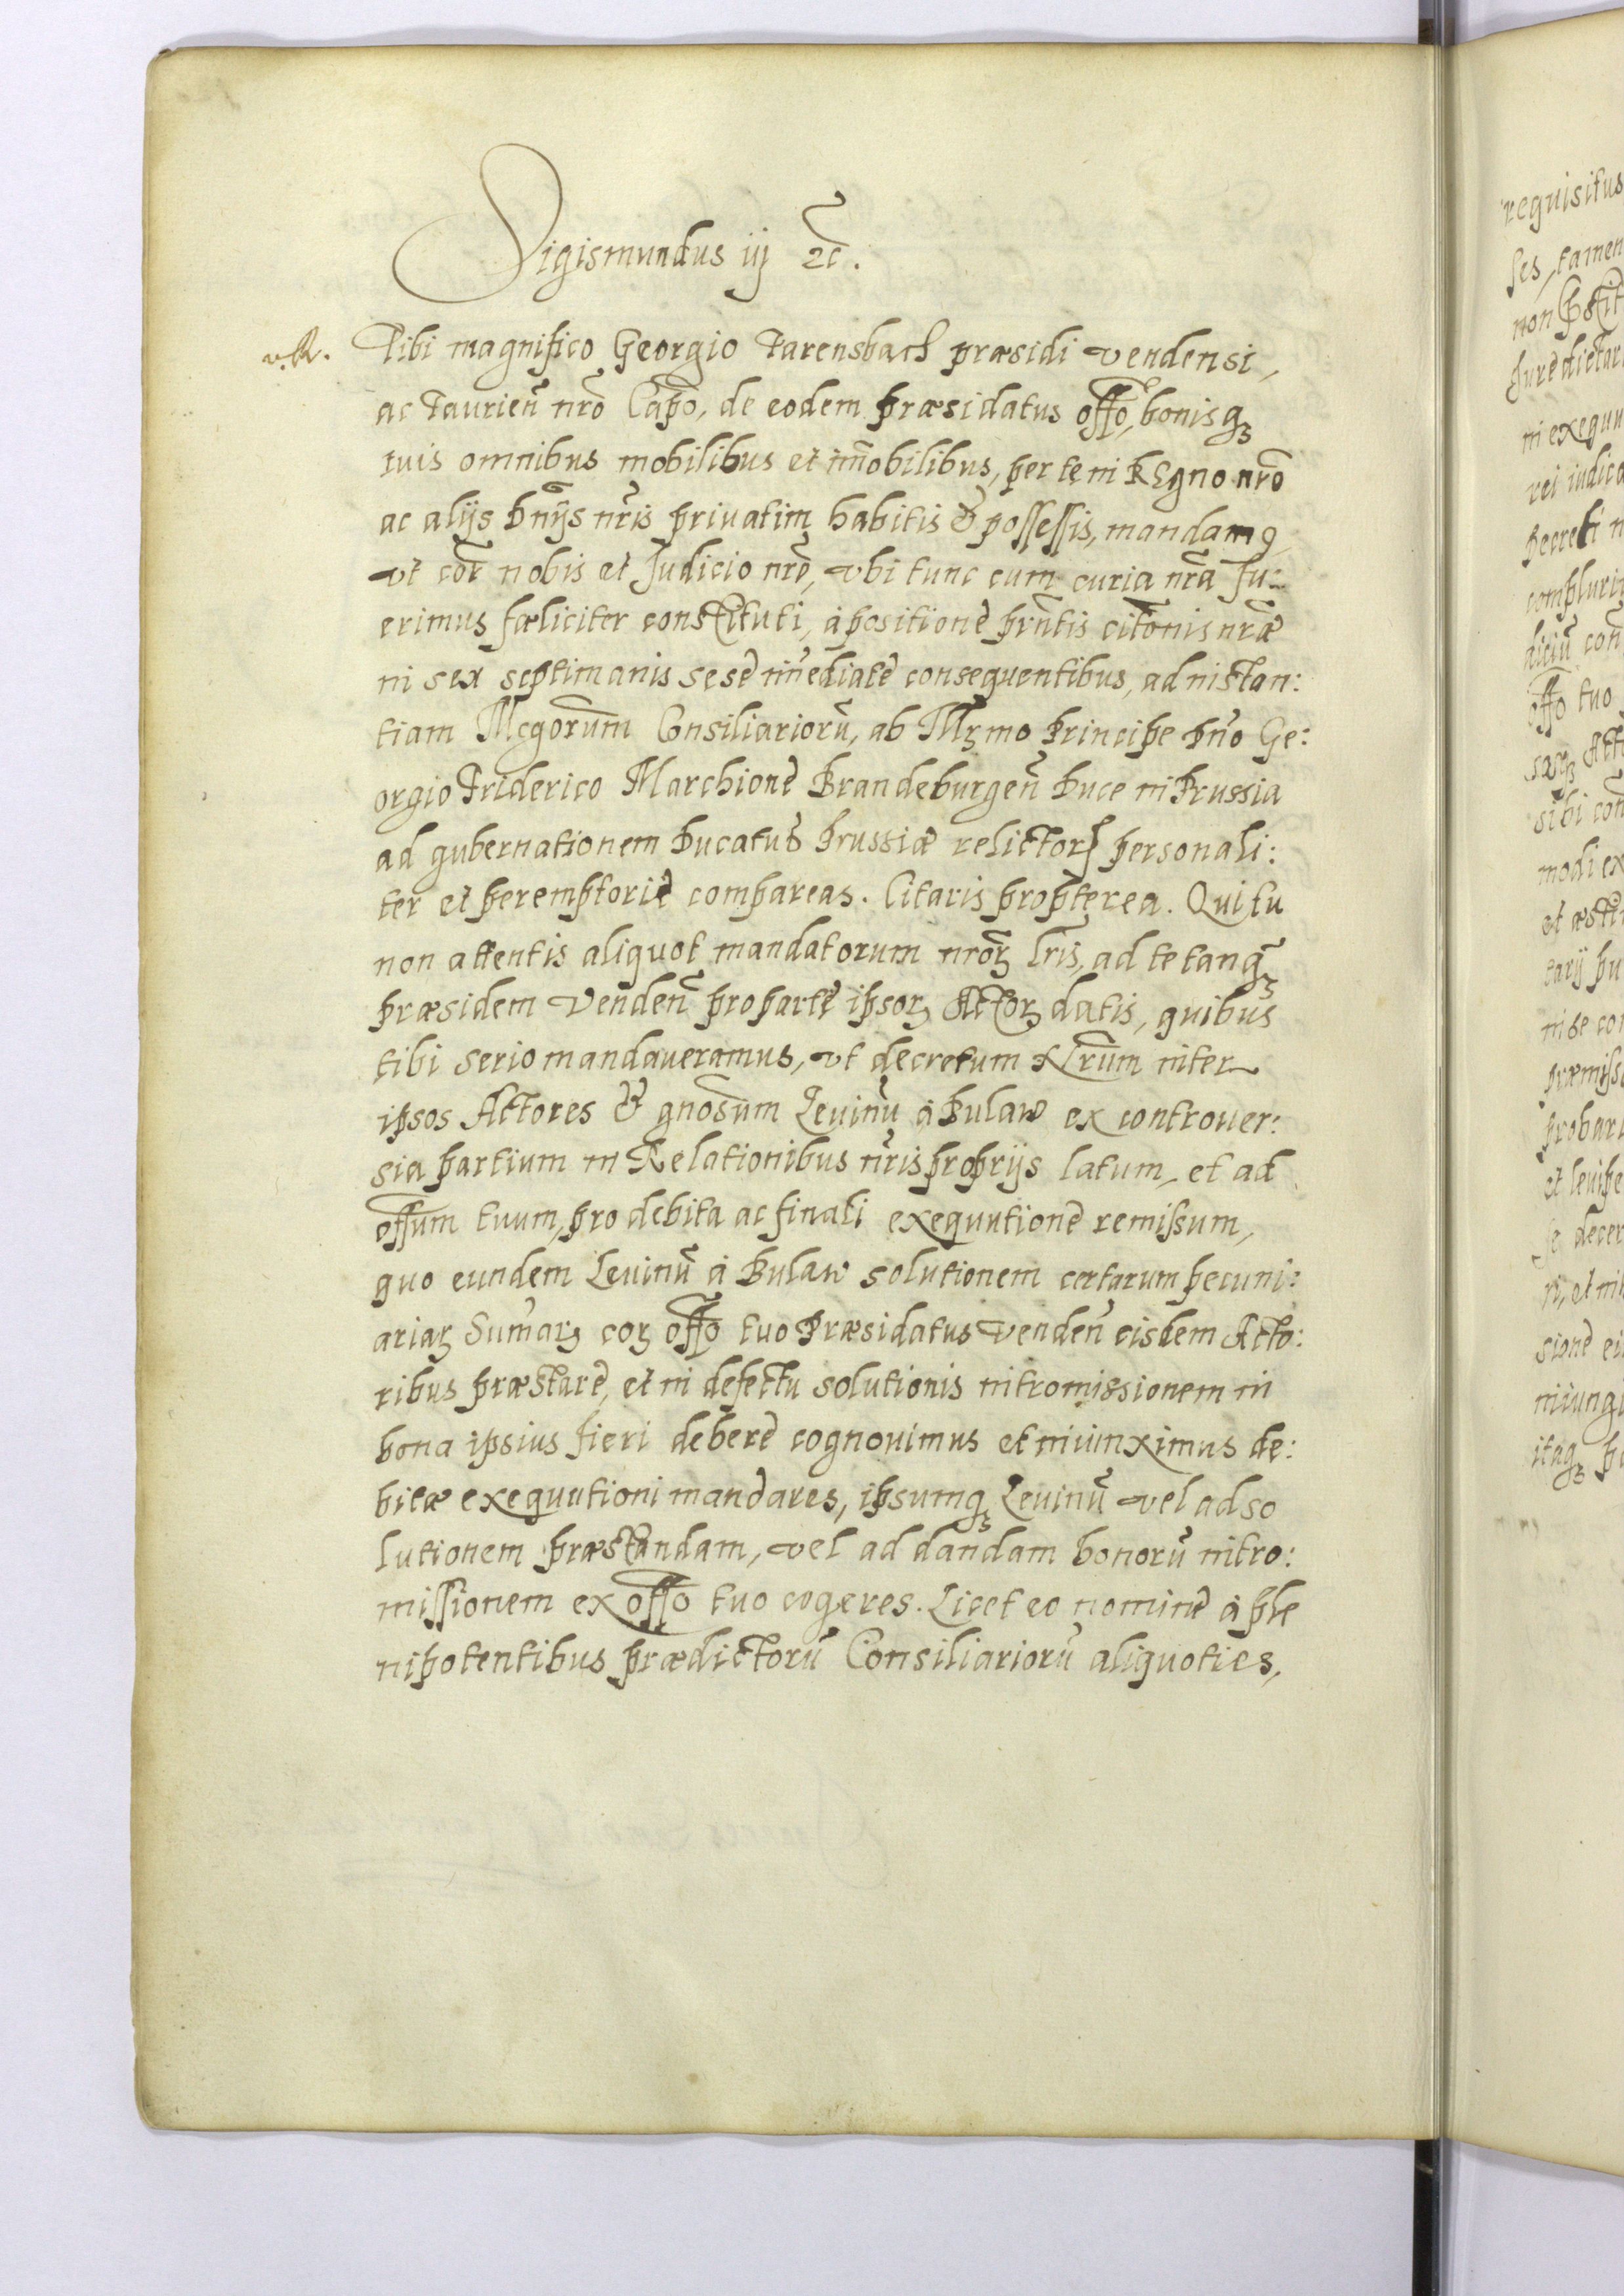 Sigismundus iij etc.
v. R.
Tibi magnifico Georgio Farensbach præsidi Vendensi,
ac Taurien̄ nr̄o Capō, de eodem præsidatus offō, bonisq̨
tuis omnibus mobilibus et im̄obilibus, per te in Regno nr̄o
ac alijs Dn̄ijs nr̄is priuatim habitis & possessis, mandamꝰ
vt cor̄ nobis et Judicio nr̄o, vbi tunc cum curia nr̄a fu:
erimus fœliciter constituti, à positione prn̄tis citōnis nr̄æ
in sex septimanis sesè im̄ediatè consequentibus, ad instan:
tiam Mcgorum̄ Consiliariorū, ab Illꝫmo Principe Dn̄o Ge:
orgio Friderico Marchione Brandeburgen̄ Duce in Prussia
ad gubernationem Ducatus Prussiæ relictorꝫ personali:
ter et peremptoriè compareas. Citaris propterea. Qui tu
non attentis aliquot mandatorum nrōꝝ lr̄is, ad te tanq̨
præsidem Venden̄ pro parte ipsoꝝ Actoꝝ datis, quibus
tibi serio mandaueramus, vt decretum Nr̄um inter
ipsos Actores & gnōsum Leuinū à Bulaw ex controuer:
sia partium in Relationibus nr̄is proprijs latum, et ad
offūm tuum, pro debita ac finali exequutione remissum,
quo eundem Leuinū à Bulaw solutionem certarum pecuni:
ariaꝝ Sum̄aꝝ coꝝ offō tuo Præsidatus Venden̄ eisdem Acto:
ribus præstare, et in defectu solutionis intromissionem in
bona ipsius fieri debere cognouimus et iniunximus de:
bitæ exequutioni mandares, ipsumq̨ Leuinū vel ad so
lutionem præstandam, vel ad dandam bonorū intro:
missionem ex offō tuo cogeres. Licet eo nomine à ple
nipotentibus prædictorū Consiliariorū aliquoties,
requisitus
tamen
non
tuo
et